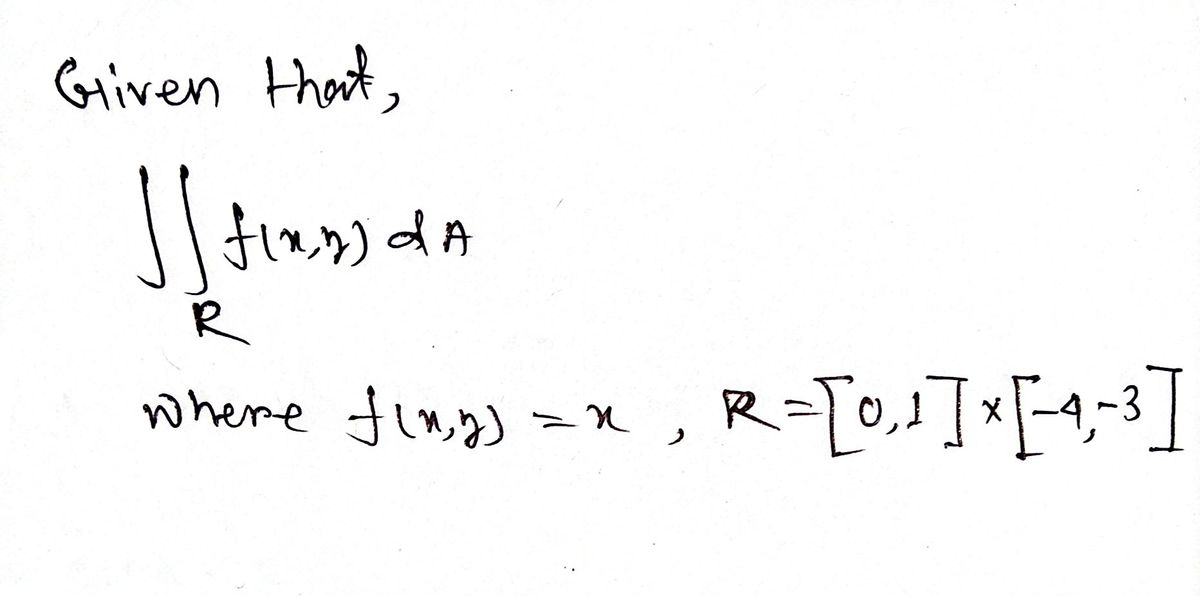 Given that,
∬ f(x,y) dA
R
where f(x,y) = x , R = [0,1] × [-4,-3]